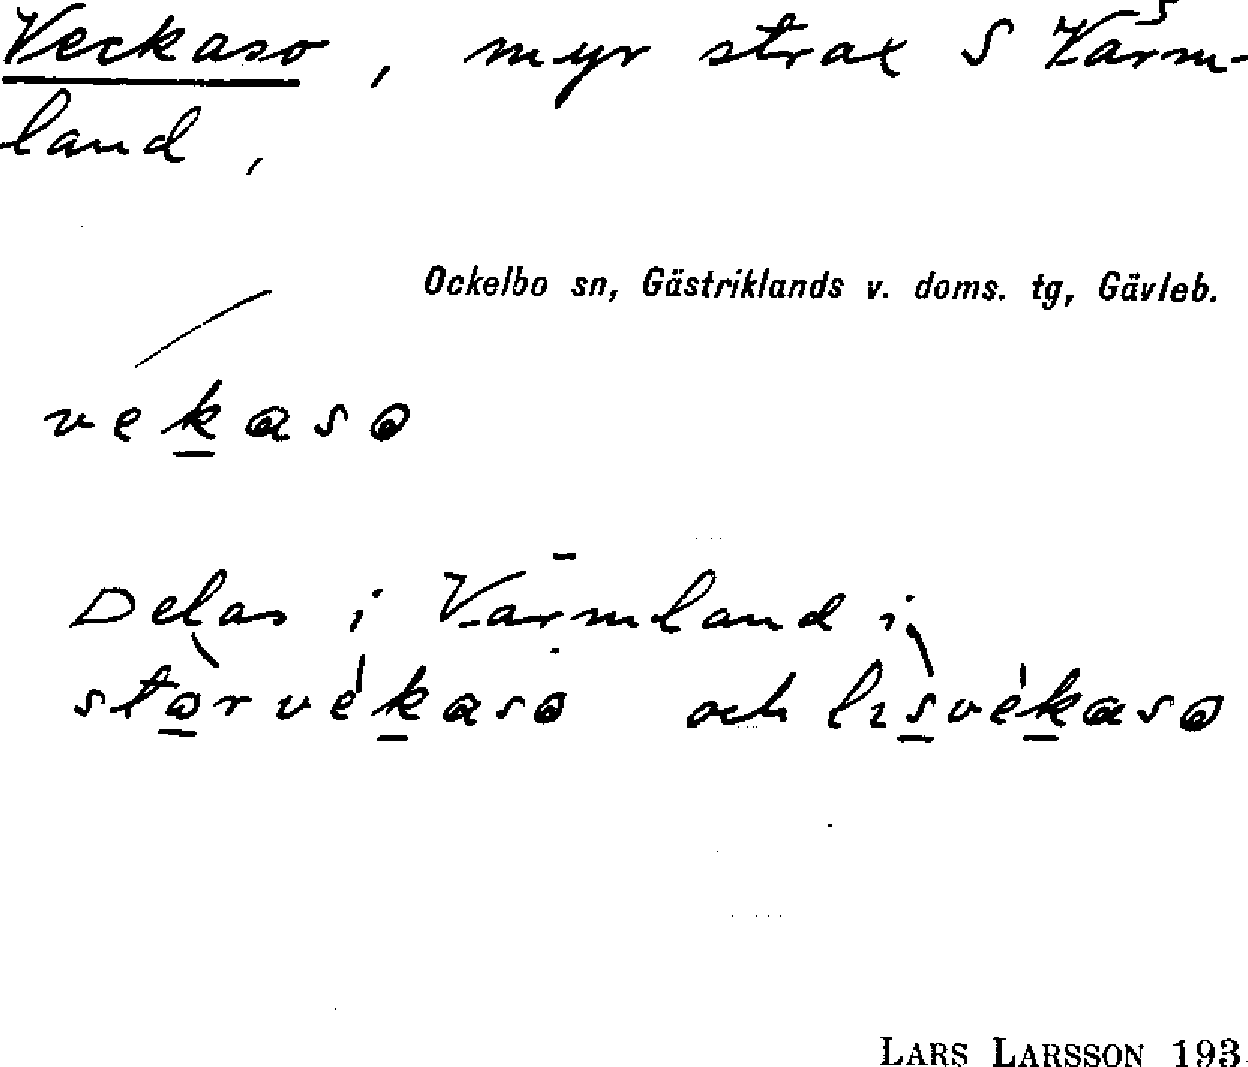 Veckaso, myr strax S Värm-
land,
Ockelbo sn, Gästriklands v. doms. tg, Gävleb.
vekaso
Delas i Värmland i
storvekaso och lisvekaso
LARS LARSSON 193